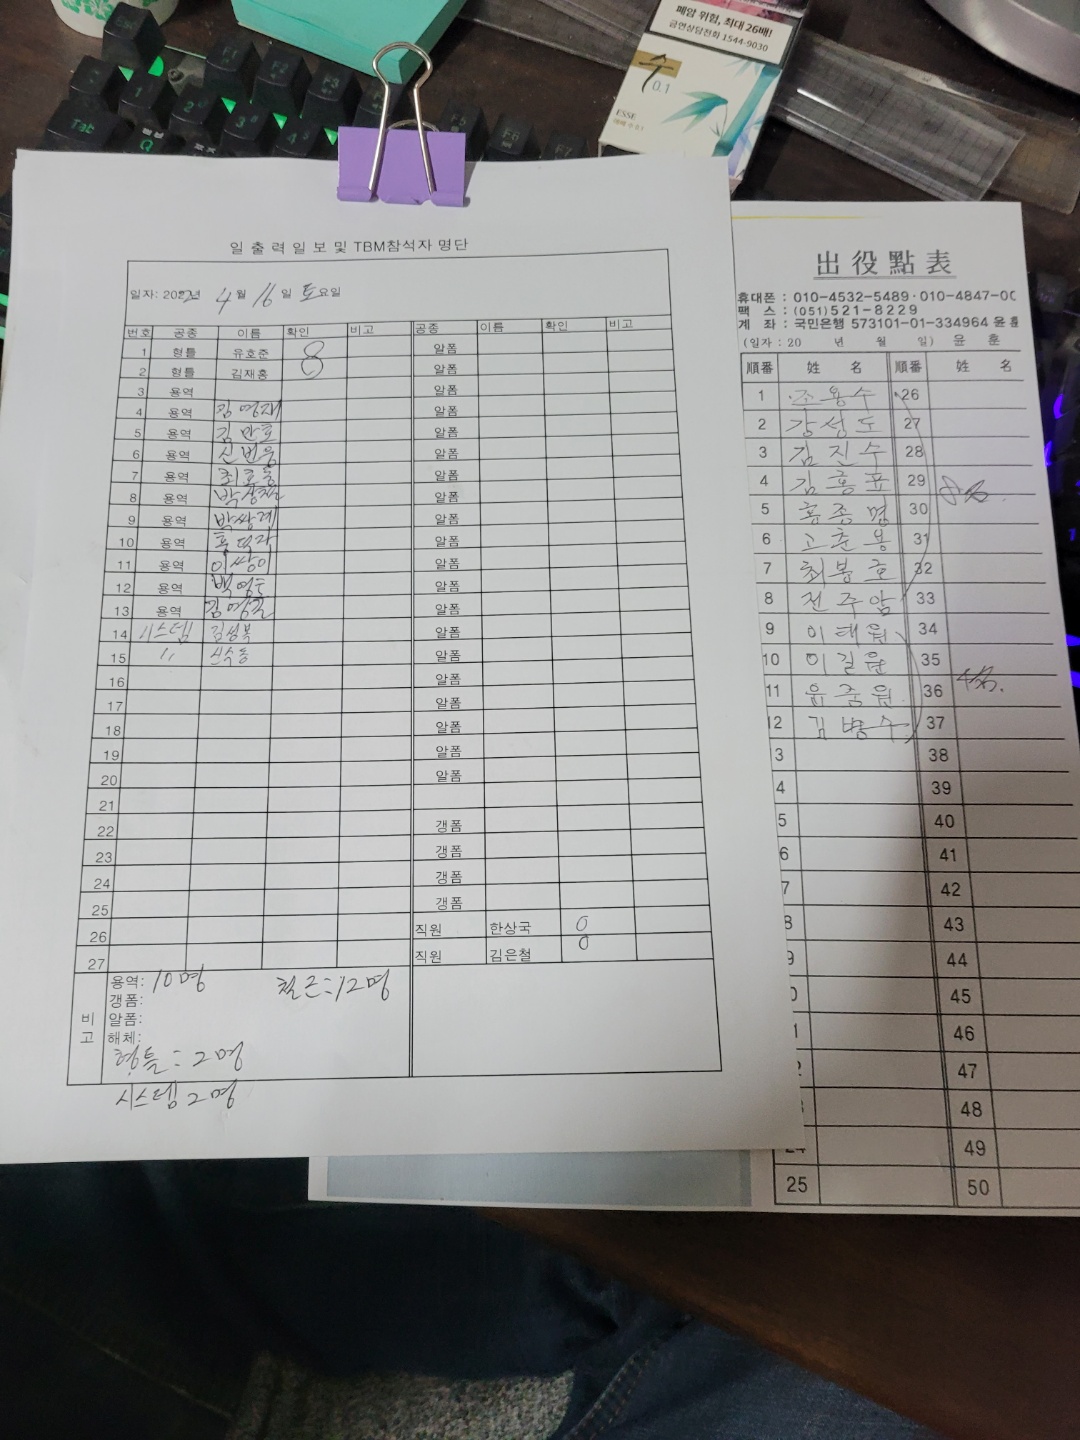 폐암 위험, 최대 26배!
금연상담전화 1544-9030
수 0.1
ESSE
일 출 력 일 보 및 TBM참석자 명단
일자: 2022년 4 월 16 일 토요일
번호 공종 이름 확인 비고 공종 이름 확인 비고
1 형틀 유호준 알폼
2 형틀 김재홍 알폼
3 용역 알폼
4 용역 김영재 알폼
5 용역 알폼
6 용역 알폼
7 용역 알폼
8 용역 알폼
9 용역 알폼
10 용역 알폼
11 용역 알폼
12 용역 알폼
13 용역 알폼
14 시스템 김성복 알폼
15 〃 신수동 알폼
16 알폼
17 알폼
18 알폼
19 알폼
20 알폼
21
22 갱폼
23 갱폼
24 갱폼
25 갱폼
26 직원 한상국 0
27 직원 김은철 0
비고
용역: 10명 철근:12명
갱폼:
알폼:
해체:
형틀: 2명
시스템 2명
出 役 點 表
휴대폰 : 010-4532-5489 · 010-4847-00
팩 스 : (051)521-8229
계 좌 : 국민은행 573101-01-334964 윤 훈
(일자 : 20 년 월 일) 윤 훈
順番 姓 名 順番 姓 名
1 조용수 26
2 강성도 27
3 김진수 28
4 김홍표 29 8명.
5 홍종명 30
6 고춘용 31
7 최봉호 32
8 전주암 33
9 이태원 34
10 이길윤 35
11 윤중원 36 4명.
12 김병수 37
3 38
4 39
5 40
6 41
7 42
8 43
9 44
0 45
1 46
2 47
3 48
24 49
25 50